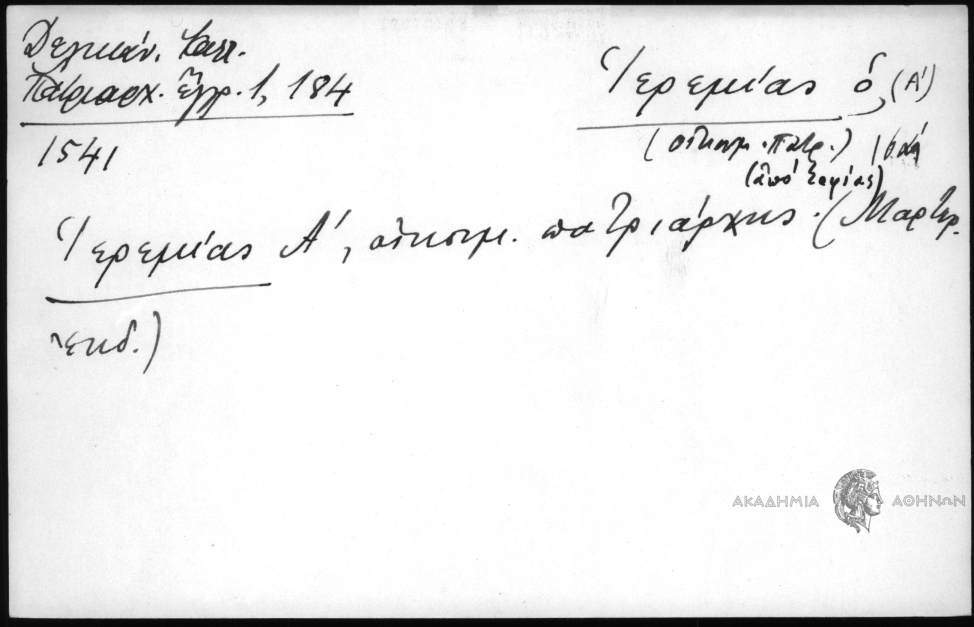 Δελικάν. Κατ.
Πατριαρχ. Ἐγγρ. 1, 184
1541
Ἱερεμίας ὁ (Α')
(οἰκουμ. Πατρ.)
(ἀπό Σοφίας)
Ἱερεμίας Α', οἰκουμ. πατριάρχης. (Μαρτυρ.
ἐκδ.)
ΑΚΑΔΗΜΙΑ ΑΘΗΝΩΝ